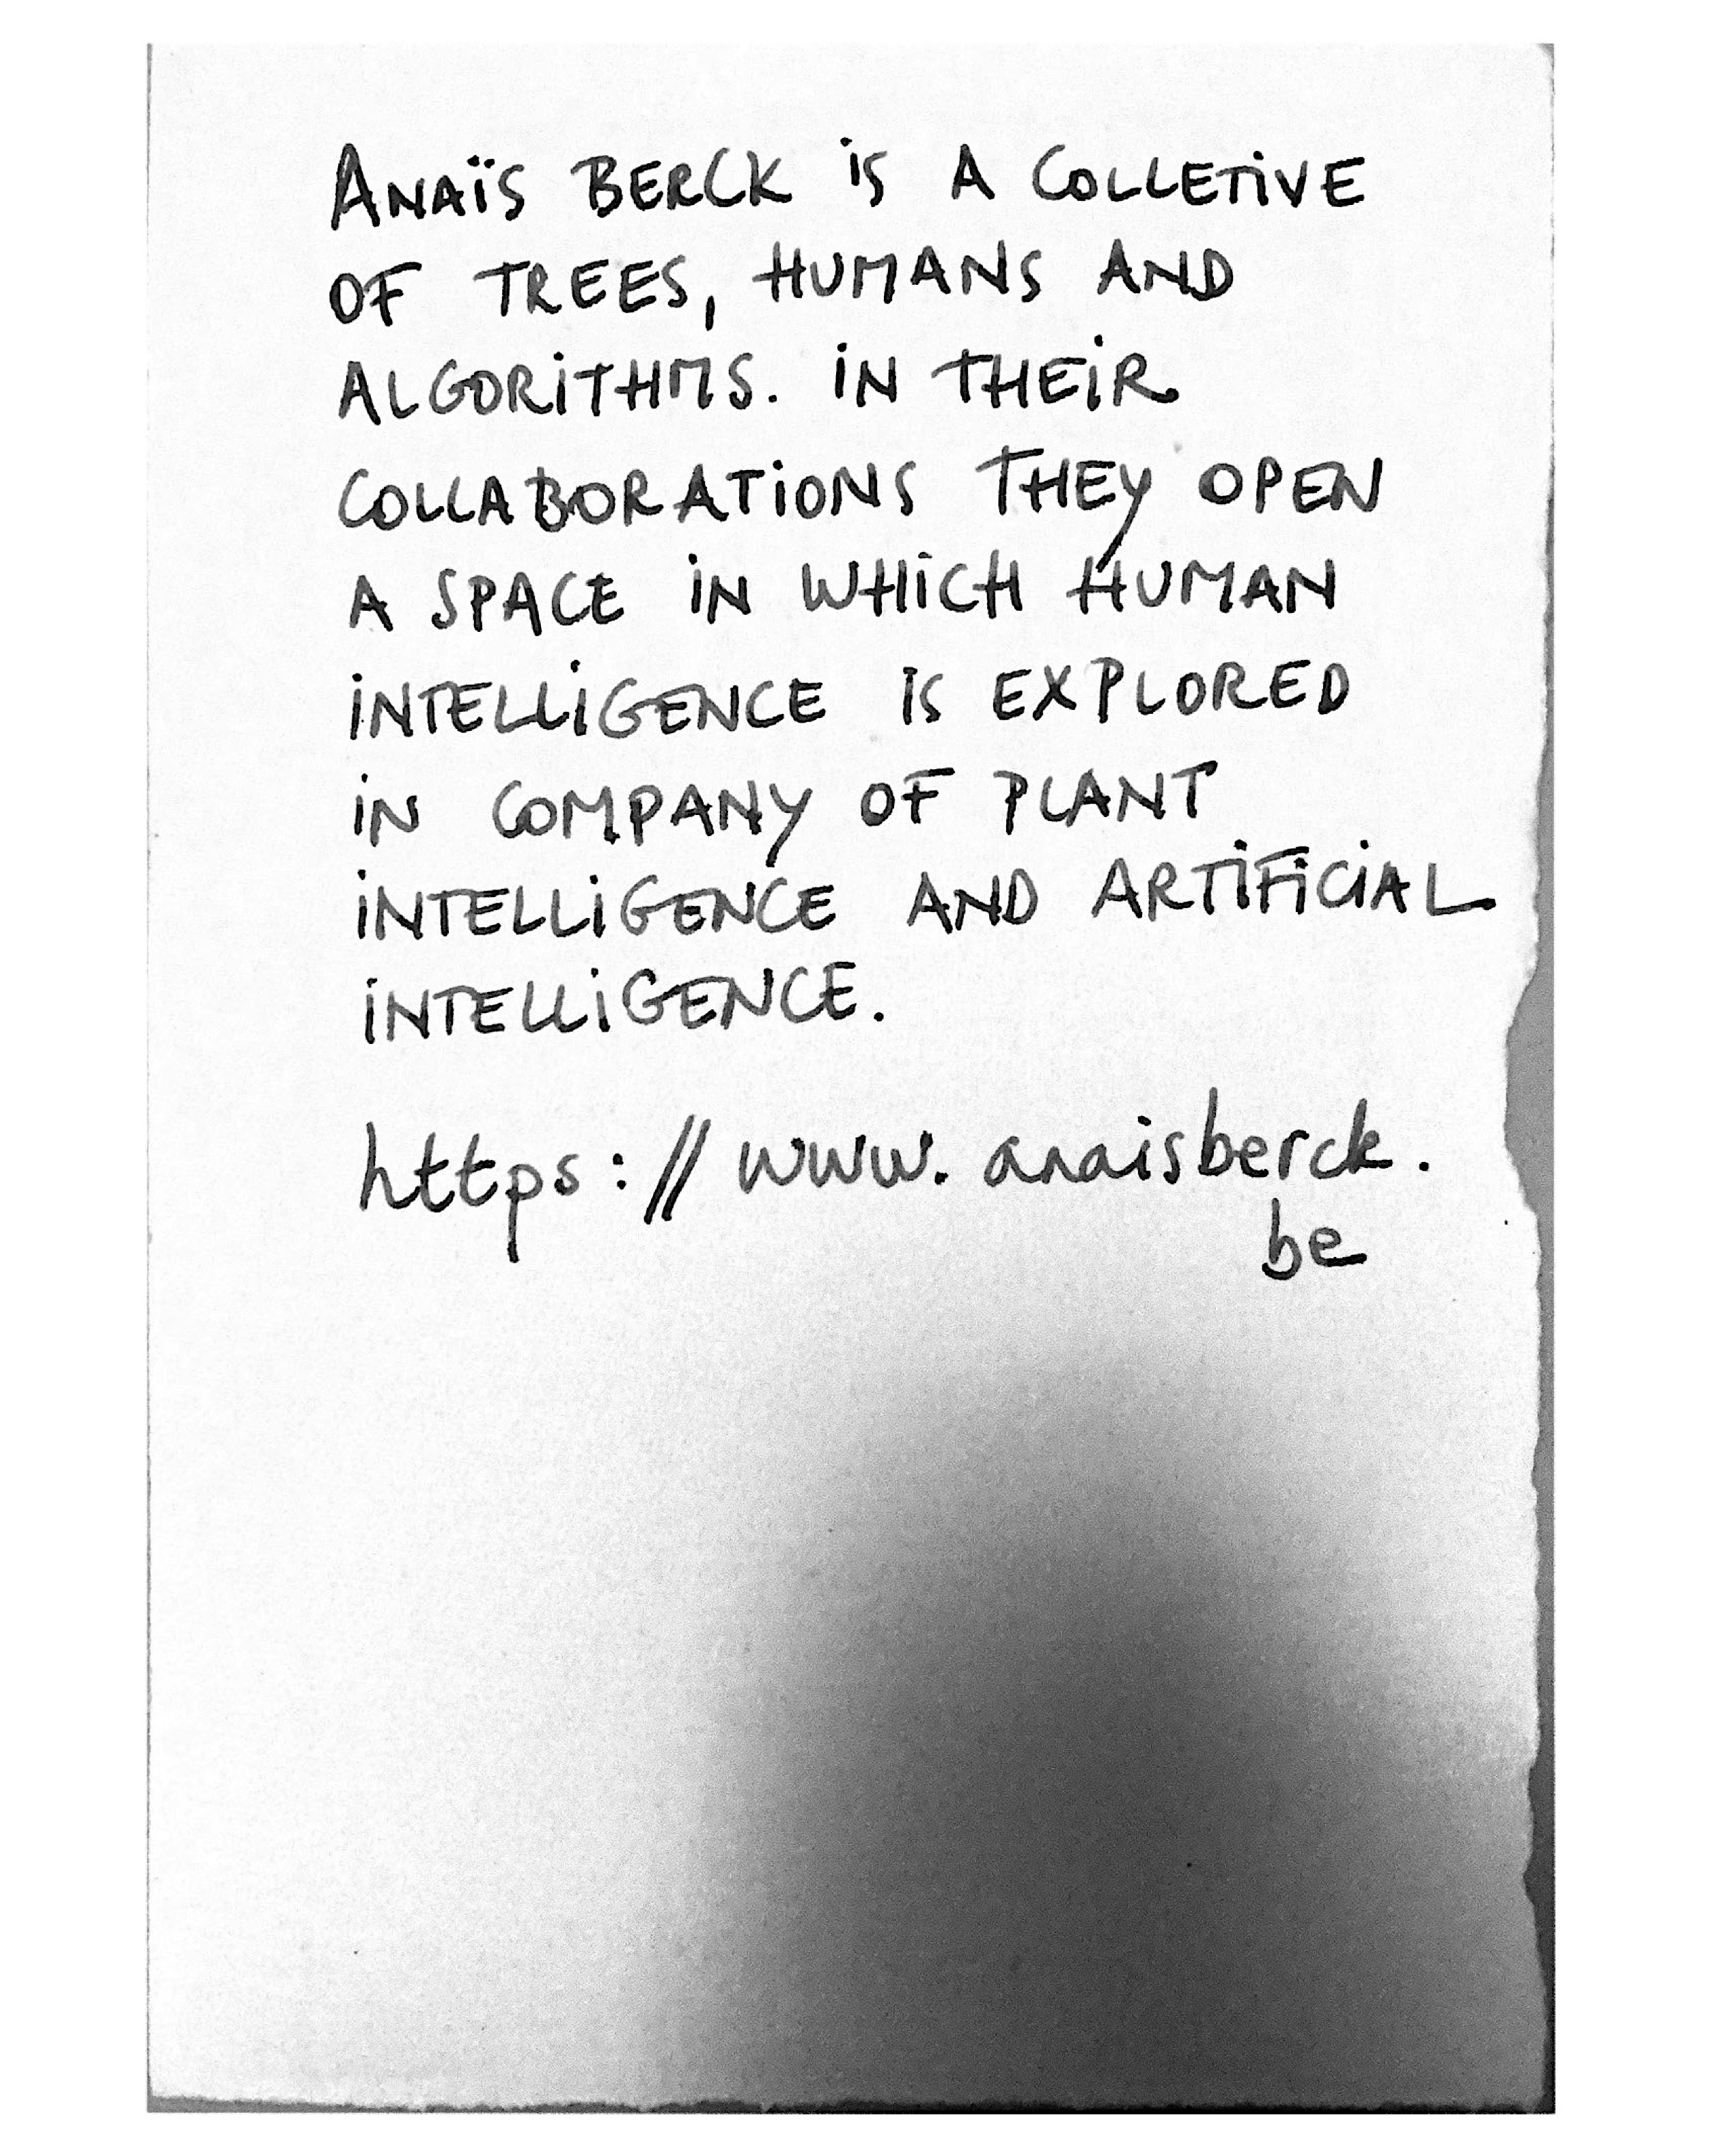 ANAÏS BERCK iS A COLLETiVE
OF TREES, HUMANS AND
ALGORiTHMS. iN THEiR
COLLABORATiONS THEY OPEN
A SPACE iN WHiCH HUMAN
iNTELLiGENCE iS EXPLORED
iN COMPANY OF PLANT
iNTELLiGENCE AND ARTiFiCiAL
iNTELLiGENCE.
https://www.anaisberck.
be